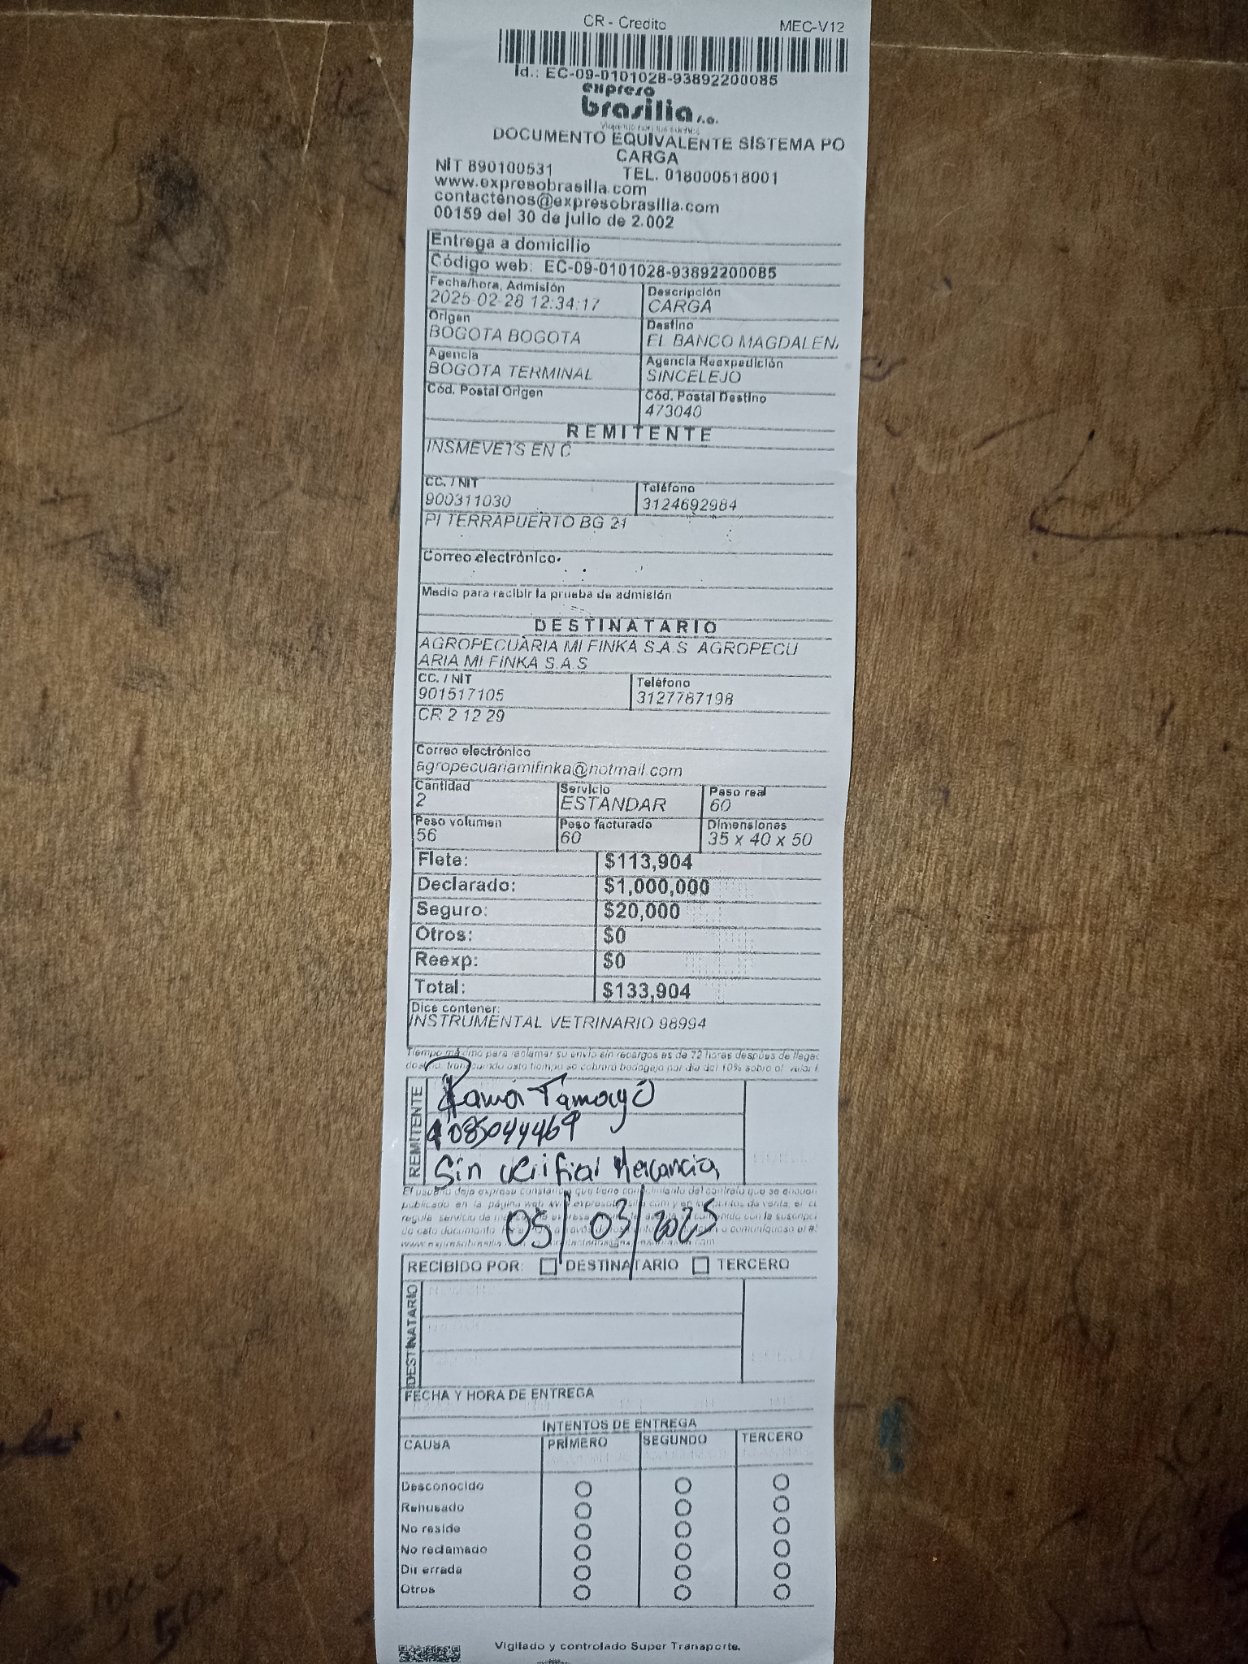 CR - Credito MEC-V12
Id.: EC-09-0101028-93892200085
expreso
brasilia s.a.
DOCUMENTO EQUIVALENTE SISTEMA PO
CARGA
NIT 890100531 TEL. 018000518001
www.expresobrasilia.com
contactenos@expresobrasilia.com
00159 del 30 de julio de 2.002
Entrega a domicilio
Código web: EC-09-0101028-93892200085
Fecha/hora, Admisión Descripción
2025-02-28 12:34:17 CARGA
Origen Destino
BOGOTA BOGOTA EL BANCO MAGDALEN
Agencia Agencia Reexpedición
BOGOTA TERMINAL SINCELEJO
Cód. Postal Origen Cód. Postal Destino
473040
REMITENTE
INSMEVETS EN C
CC. / NIT Teléfono
900311030 3124692984
PI TERRAPUERTO BG 21
Correo electrónico
Medio para recibir la prueba de admisión
DESTINATARIO
AGROPECUARIA MI FINKA S.A.S AGROPECU
ARIA MI FINKA S.A.S
CC. / NIT Teléfono
901517105 3127787198
CR 2 12 29
Correo electrónico
agropecuariamifinka@hotmail.com
Cantidad Servicio Peso real
2 ESTANDAR 60
Peso volumen Peso facturado Dimensiones
56 60 35 x 40 x 50
Flete: $113,904
Declarado: $1,000,000
Seguro: $20,000
Otros: $0
Reexp: $0
Total: $133,904
Dice contener:
INSTRUMENTAL VETRINARIO 98994
Tiempo máximo para reclamar su envío sin recargos es de 72 horas después de llegar
REMITENTE
Tamayo
1085044469
Sin verificar Mercancia
05/03/2025
RECIBIDO POR: DESTINATARIO TERCERO
DESTINATARIO
FECHA Y HORA DE ENTREGA
INTENTOS DE ENTREGA
CAUSA PRIMERO SEGUNDO TERCERO
Desconocido
Rehusado
No reside
No reclamado
Dir errada
Otros
Vigilado y controlado Super Transporte.